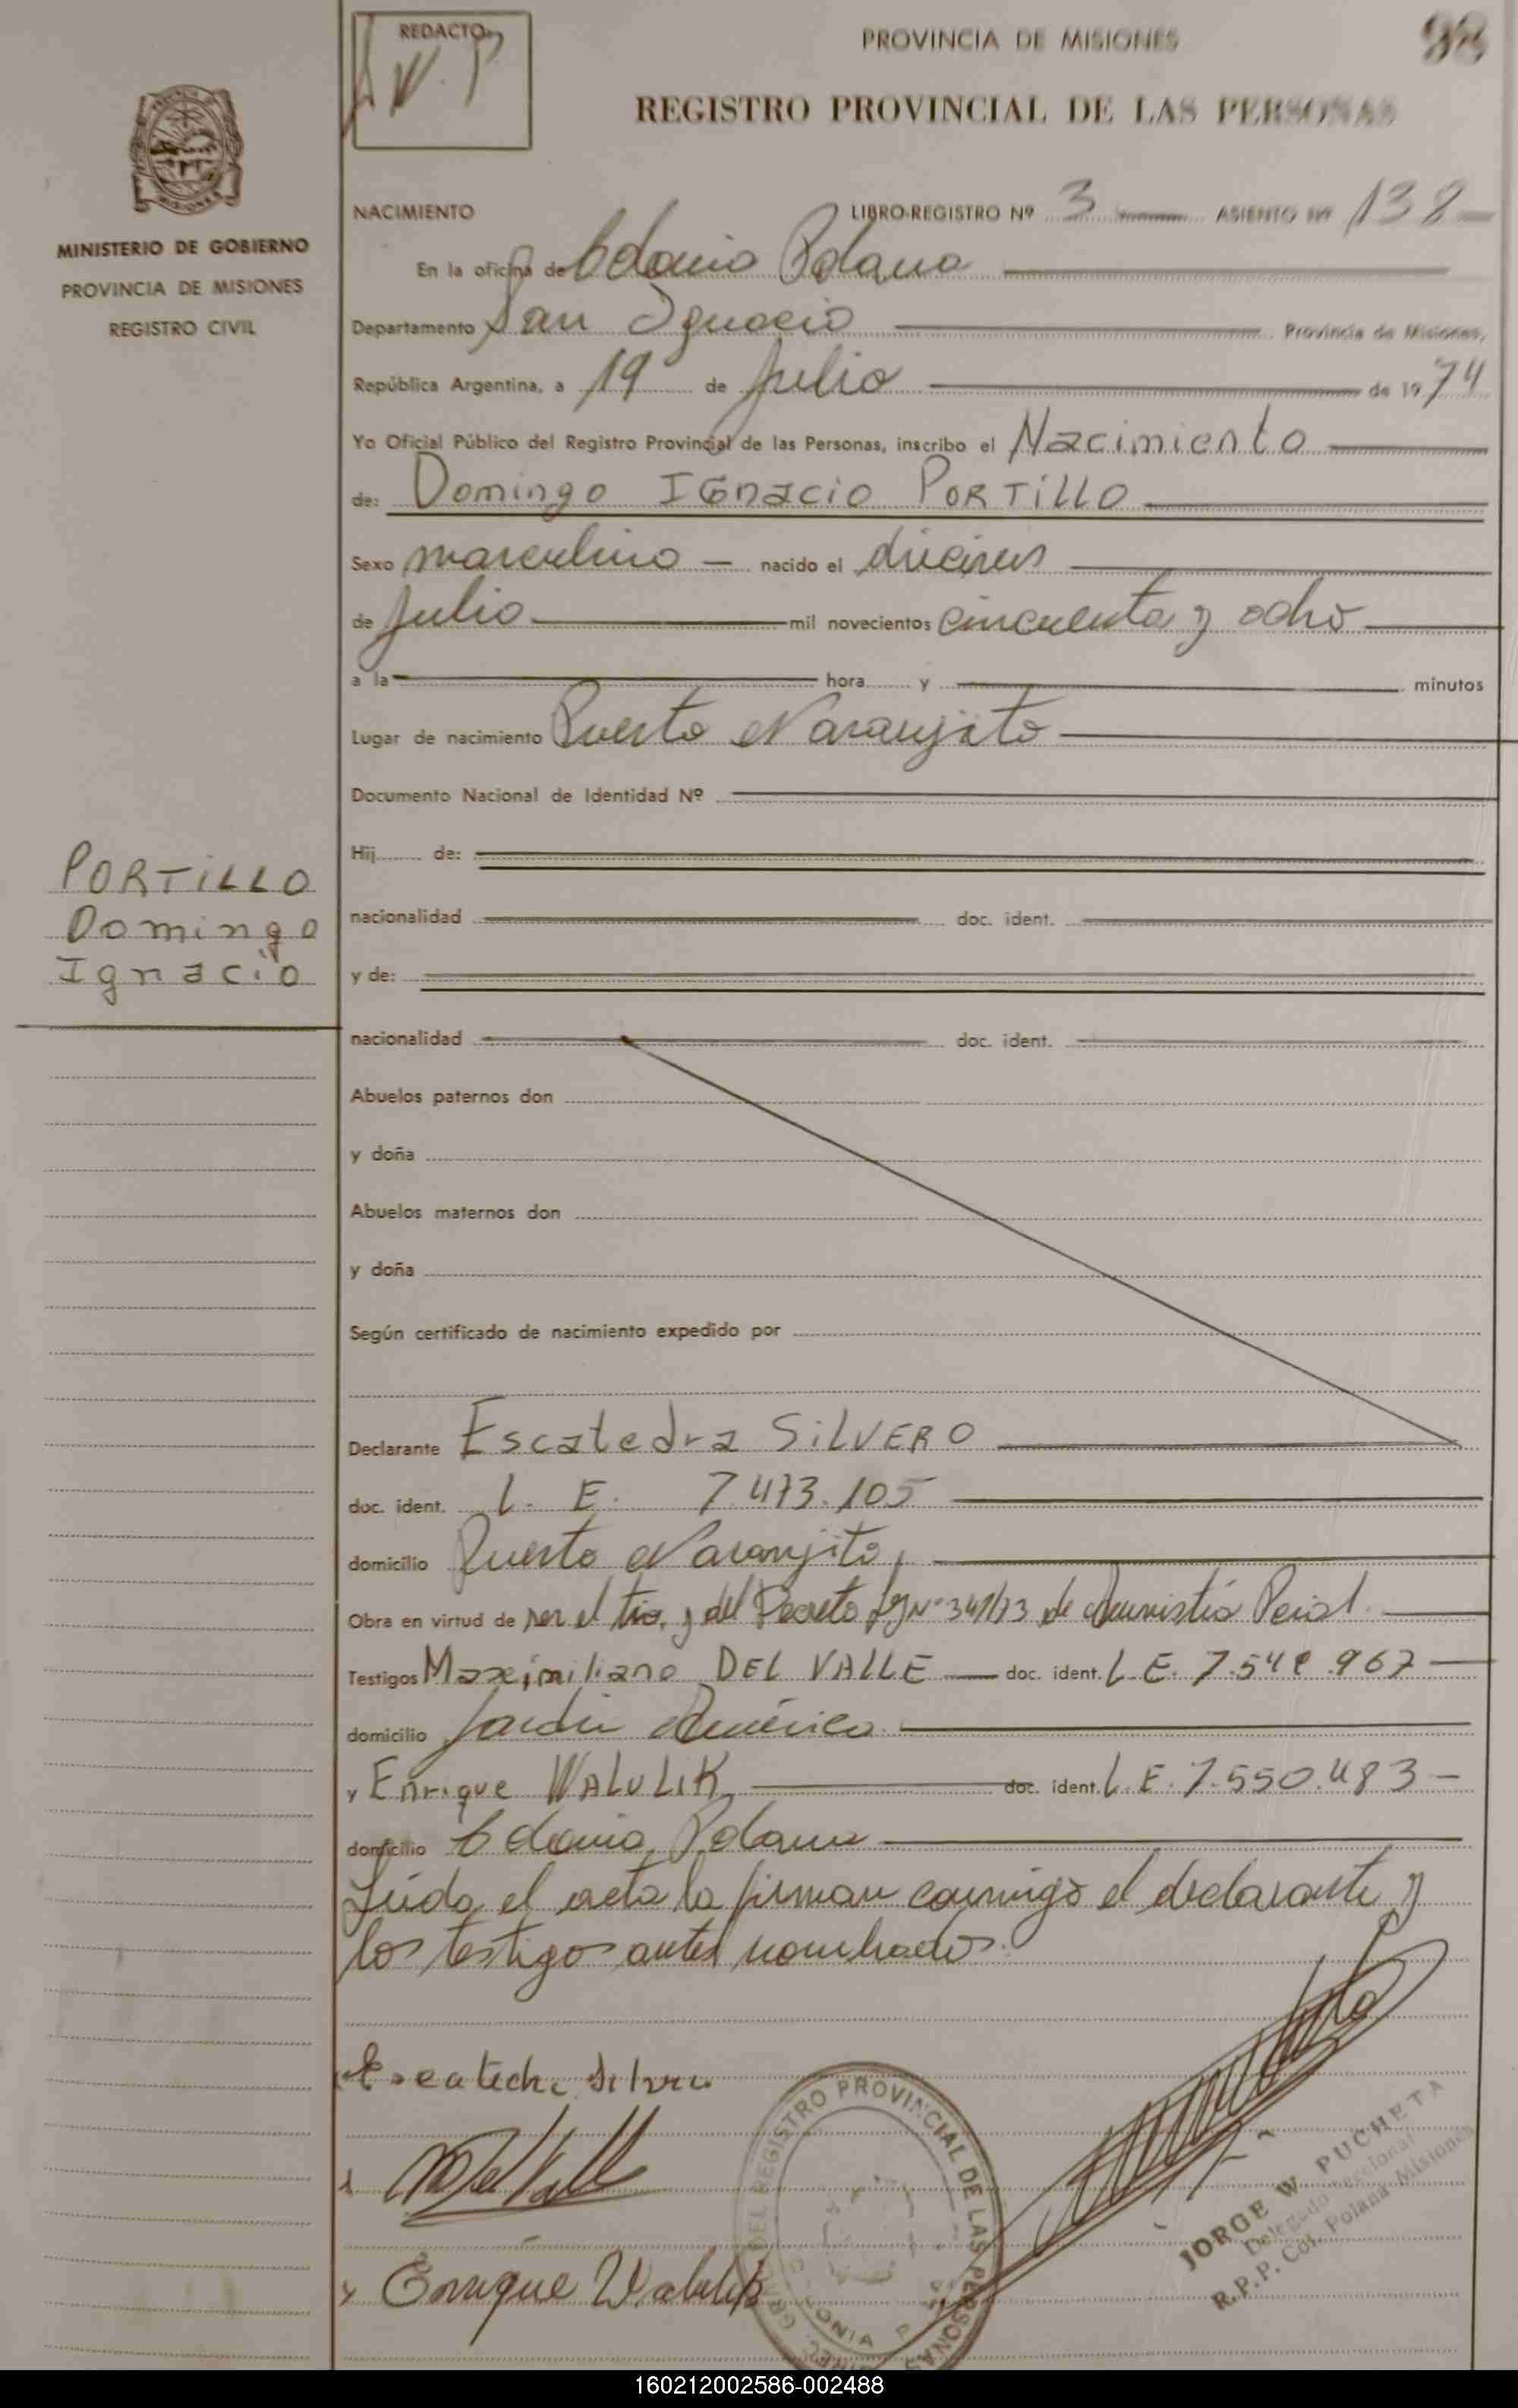 REDACTO
PROVINCIA DE MISIONES
REGISTRO PROVINCIAL DE LAS PERSONAS
MINISTERIO DE GOBIERNO
PROVINCIA DE MISIONES
REGISTRO CIVIL
NACIMIENTO LIBRO-REGISTRO Nº 3 ASIENTO Nº 138
En la oficina de Colonia Polana
Departamento San Ignacio Provincia de Misiones,
República Argentina, a 19 de Julio de 1974
Yo Oficial Público del Registro Provincial de las Personas, inscribo el Nacimiento
de: Domingo IGnacio PORTiLLO
Sexo masculino nacido el dieciseis
de Julio mil novecientos cincuenta y ocho
a la hora y minutos
Lugar de nacimiento Puerto Naranjito
Documento Nacional de Identidad Nº
Hij de:
PORTiLLO
Domingo
Ignacio
nacionalidad doc. ident.
y de:
nacionalidad doc. ident.
Abuelos paternos don
y doña
Abuelos maternos don
y doña
Según certificado de nacimiento expedido por
Declarante Escatedra SiLVERO
doc. ident. L. E. 7.473.105
domicilio Puerto Naranjito,
Obra en virtud de ser el tio, y del Decreto Ley Nº 341/73 de Amnistía
Testigos Maximiliano DEL VALLE doc. ident. L.E. 7.549.967
domicilio Jardin América
y Enrique WALULIK doc. ident. L.E. 7.550.483
domicilio Colonia Polana
Leída el acta la firman conmigo el declarante y
los testigos antes nombrados.
Enrique Walulik
REGISTRO PROVINCIAL DE LAS PERSONAS
JORGE W. PUCHETA
Delegado Seccional
R.P.P. Col. Polana-Misiones
160212002586-002488